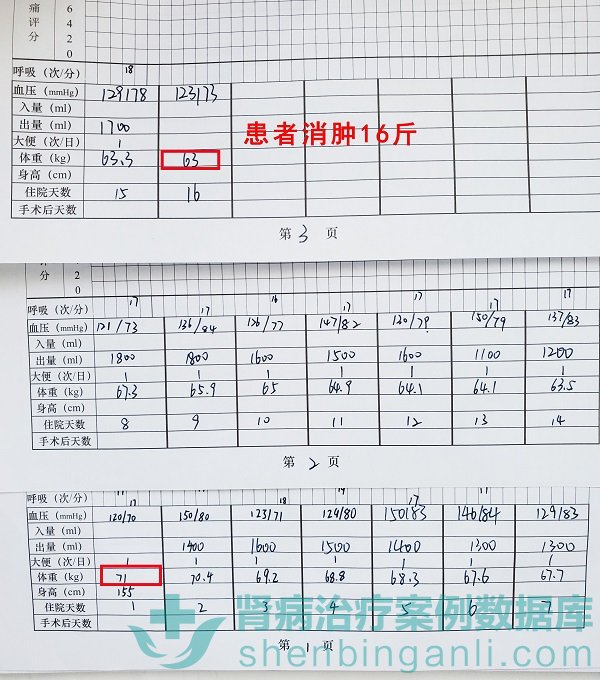 痛 6
评 4
分 2
0
呼吸（次/分） 18
血压（mmHg） 129/78 123/73
入量（ml）
出量（ml） 1700
患者消肿16斤
大便（次/日） 1
体重（kg） 63.3 63
身高（cm）
住院天数 15 16
手术后天数
第 3 页
分 2
0
呼吸（次/分） 17 17 16 17 17 17 17
血压（mmHg） 121/73 136/84 126/77 147/82 120/79 150/79 137/83
入量（ml）
出量（ml） 1800 1800 1600 1500 1600 1100 1200
大便（次/日） 1 1 1 1 1 1 1
体重（kg） 67.3 65.9 65 64.9 64.1 64.1 63.5
身高（cm）
住院天数 8 9 10 11 12 13 14
手术后天数
第 2 页
呼吸（次/分） 17 18 17
血压（mmHg） 120/70 150/80 123/71 124/80 150/83 146/84 129/83
入量（ml）
出量（ml） 1400 1600 1500 1400 1300 1300
大便（次/日） 1 1 1 1 1 1 1
体重（kg） 71 70.4 69.2 68.8 68.3 67.6 67.7
身高（cm） 155
住院天数 1 2 3 4 5 6 7
手术后天数
肾病治疗案例数据库
shenbinganli.com
第 1 页